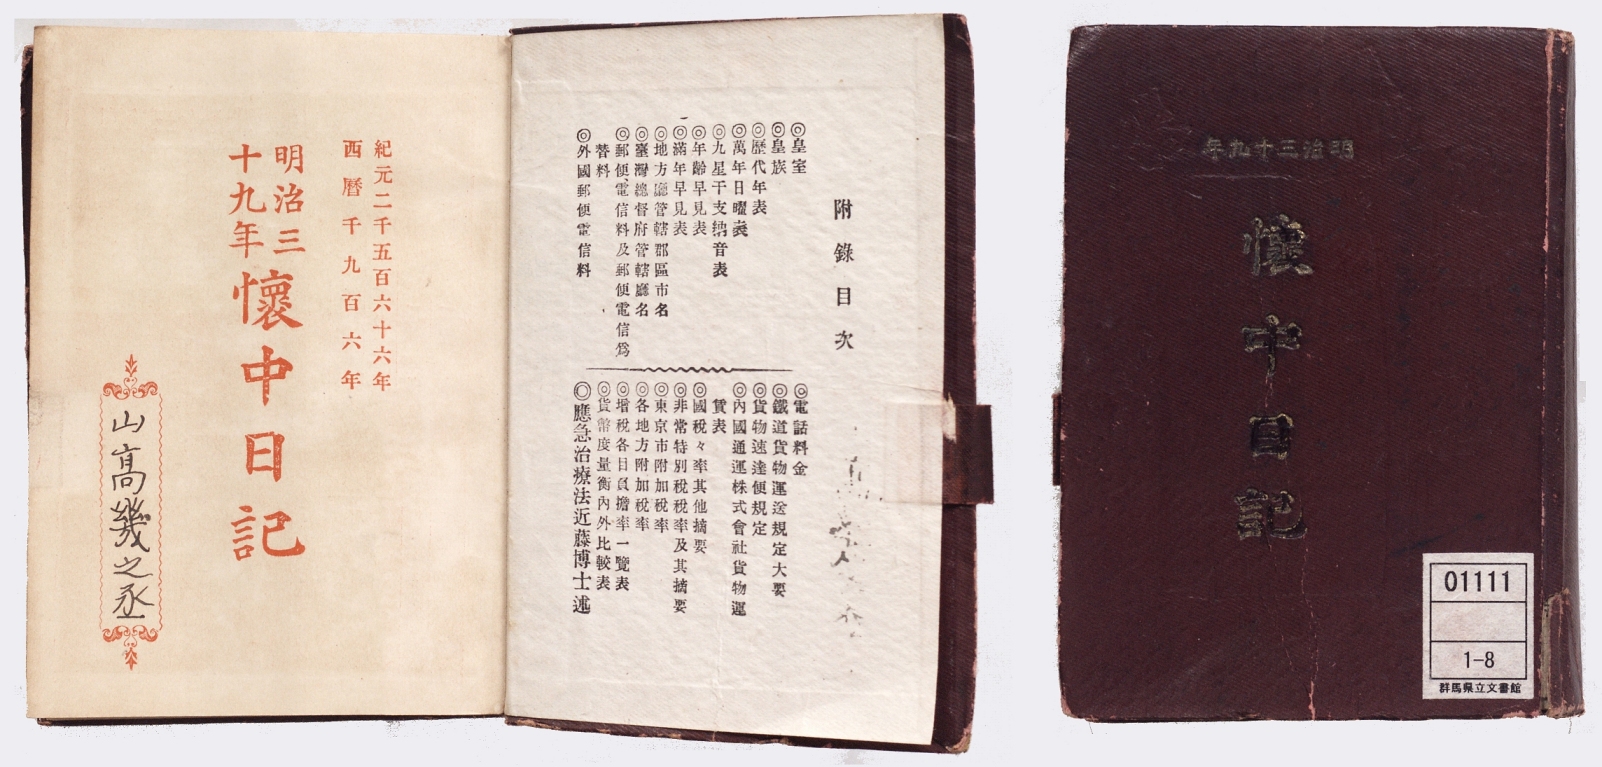 紀元二千五百六十六年
西暦千九百六年
明治三
十九年
懷中日記
山高幾之丞
附錄目次
◎皇室
◎皇族
◎歷代年表
◎萬年日曜表
◎九星干支納音表
◎年齡早見表
◎滿年早見表
◎地方廳管轄郡區市名
◎臺灣總督府管轄廳名
◎郵便、電信料及郵便電信爲
替料
◎外國郵便電信料
◎電話料金
◎鐵道貨物運送規定大要
◎貨物速達便規定
◎內國通運株式會社貨物運
賃表
◎國稅々率其他摘要
◎非常特別稅稅率及其摘要
◎東京市附加稅率
◎各地方附加稅率
◎增稅各目負擔率一覽表
◎貨幣度量衡內外比較表
◎應急治療法近藤博士述
明治三十九年
懷中日記
01111
1-8
群馬県立文書館